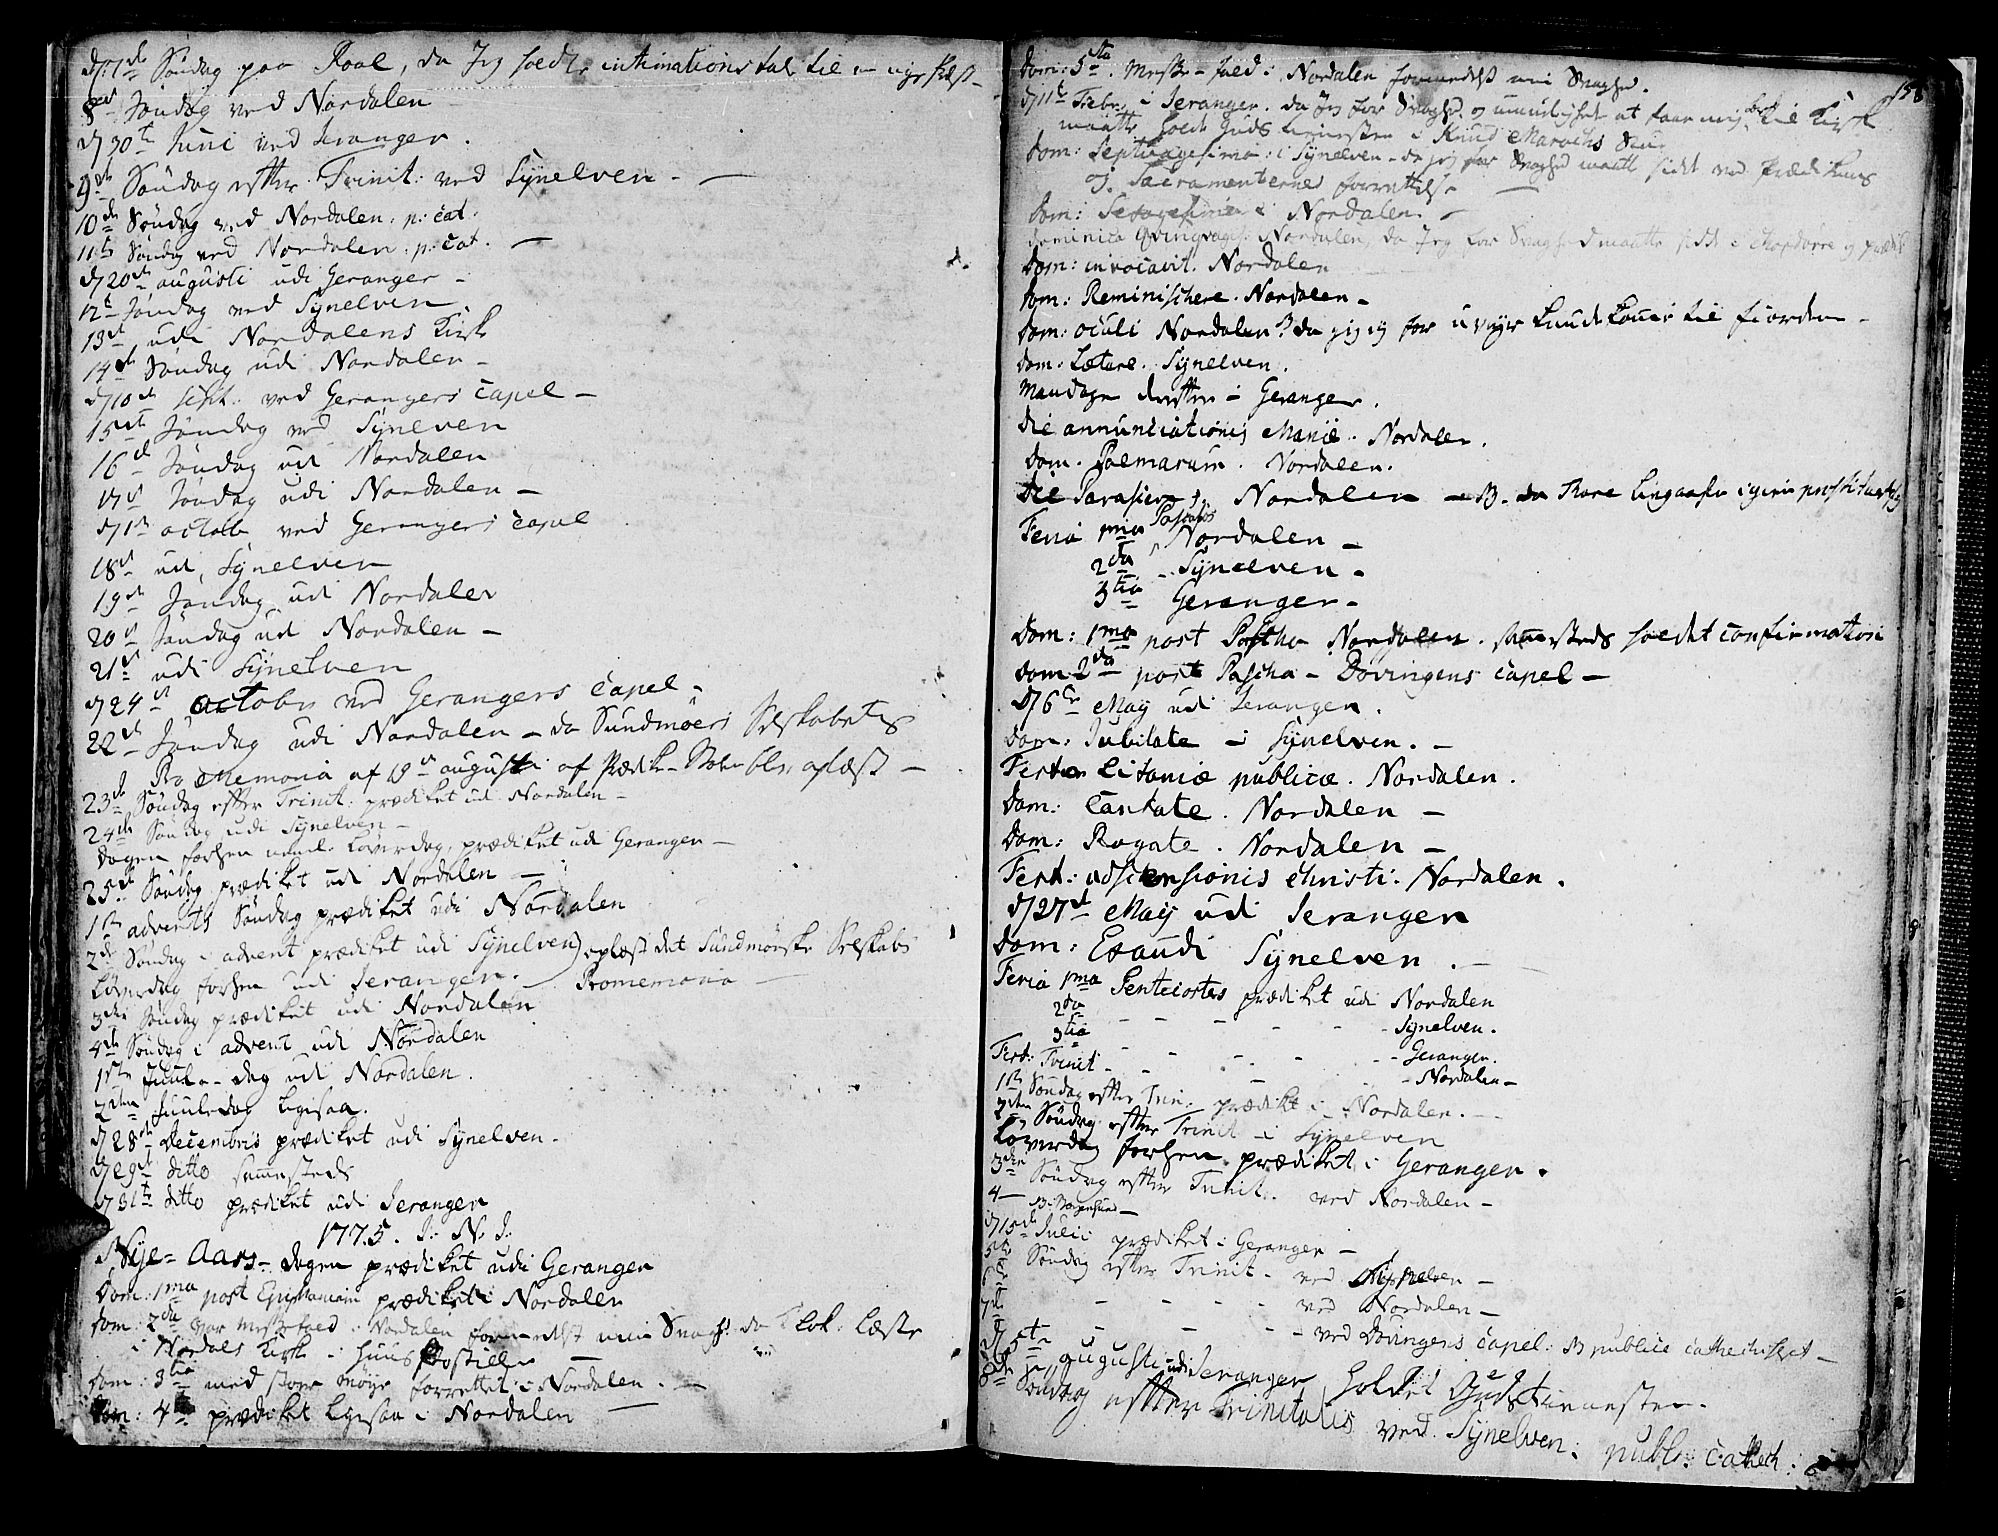 d: 7de Søndag paa Roal, da Jeg holdt intimations tal til
8de Søndag ved Nordalen
d 30te Juni ved Geranger.
9de Søndag efter Trinit: ved Synelven —
10de Søndag ved Nordalen: p: cat:
11te Søndag ved Nordalen: p: cat. —
d 20de augusti udi Geranger —
12te Søndag ved Synelven.
13de udi Nordalens Kirke
14de Søndag udi Nordalen —
d 10de sept: ved Gerangers Capel —
15de Søndag ved Synelven
16de Søndag udi Nordalen
17de Søndag udi Nordalen —
d 1ste octob ved Gerangers Capel
18de udi Synelven
19de Søndag udi Nordalen
20de Søndag udi Nordalen —
21de udi Synelven
d 24de octobr ved Gerangers Capel —
22de Søndag udi Nordalen — da Sundmøers Selskabets
Pro Memoria af 19de augusti af Prædike-Stolen blev oplæst —
23de Søndag efter Trinit: prædiket udi Nordalen —
24de Søndag udi Synelven —
Dagen forhen neml: Løverdag, prædiket udi Geranger —
25de Søndag prædiket udi Nordalen —
1ste advents Søndag prædiket udi Nordalen
2de Søndag i advent prædiket udi Synelven) oplæst det Sundmørske Selskabs
Løverdag forhen udi Geranger. — Promemoria —
3die Søndag prædiket udi Nordalen
4de Søndag i advent udi Nordalen
1ste Juule-dag udi Nordalen.
2den Juuledag ligesaa.
d 28de Decembris prædiket udi Synelven.
d 29de ditto sammesteds
d 31te ditto prædiket udi Geranger
1775. J. N. J.
Nye-Aars-dagen prædiket udi Geranger
Dom: 1ma post Epiphaniam prædiket i Nordalen
Dom: 2da var Messefald i Nordalen formedelst min Svagh: da Klok: læste
i Nordals Kirke i Huus Postillen —
Dom: 3tia med stor møye forrettet i Nordalen. —
Dom: 4ta prædiket ligesaa i Nordalen —
158
Dom: 5ta. Messe-fald i Nordalen formedelst min Svaghed.
d 11te Febr: i Geranger. da jeg for Svaghed og umuelighed at faae mig til Kirke
maatte holde Guds tienesten i Knud Maraches
Dom: Septuagesima: i Synelven — da jeg for Svaghed maatte sidde ved Prædikens
og Sacramenternes forrettelse —
Dom: Sexagesima i Nordalen. —
Dominica Qvinqvages: Nordalen, da Jeg for Svaghed maatte sidde i Chordøre og prædike
Dom: invocavit. Nordalen
Dom: Reminischere. Nordalen —
Dom: oculi Nordalen. da jeg ey for uveyr kunde komme til fiorden —
Dom: Lætare. Synelven.
Mandagen derefter i Geranger.
Die annunciationis Mariæ. Nordalen.
Dom. Palmarum. Nordalen.
Die Nordalen —
Feria 1ma Paschatos Nordalen —
2da - Synelven —
3tia Geranger —
Dom: 1ma post Pascha Nordalen. sammesteds holdt confirmation
Dom 2da post Pascha — Døvingens Capel —
d 6te May udi Geranger.
Dom: Jubilate i Synelven. —
Festo Litaniæ publicæ. Nordalen.
Dom: Cantate. Nordalen —
Dom: Rogate. Nordalen —
Fest: adscensionis Christi. Nordalen.
d 27de May udi Geranger
Dom: Exaudi Synelven. —
Feria 1ma Pentecostes prædiket udi Nordalen
2da - - - - - Synelven.
3tia - - - - - Geranger.
Fest: Trinit - - - - - Nordalen —
1ste Søndag efter Trin: prædiket i Nordalen. —
2den Søndag efter Trinit — i Synelven
Løverdag forhen prædiket i Geranger.
3die Søndag efter Trinit. ved Nordalen —
4 —
d 15de Julii prædiket i Geranger —
5te Søndag efter Trinit. ved Synelven —
6te - - - - ved Nordalen —
7de - - - - ved Døvingens Capel: publice catechiseret —
d 5te augusti udi Geranger holdet Gudstienesten.
8de Søndag efter Trinitatis ved Synelven: public: Catech: